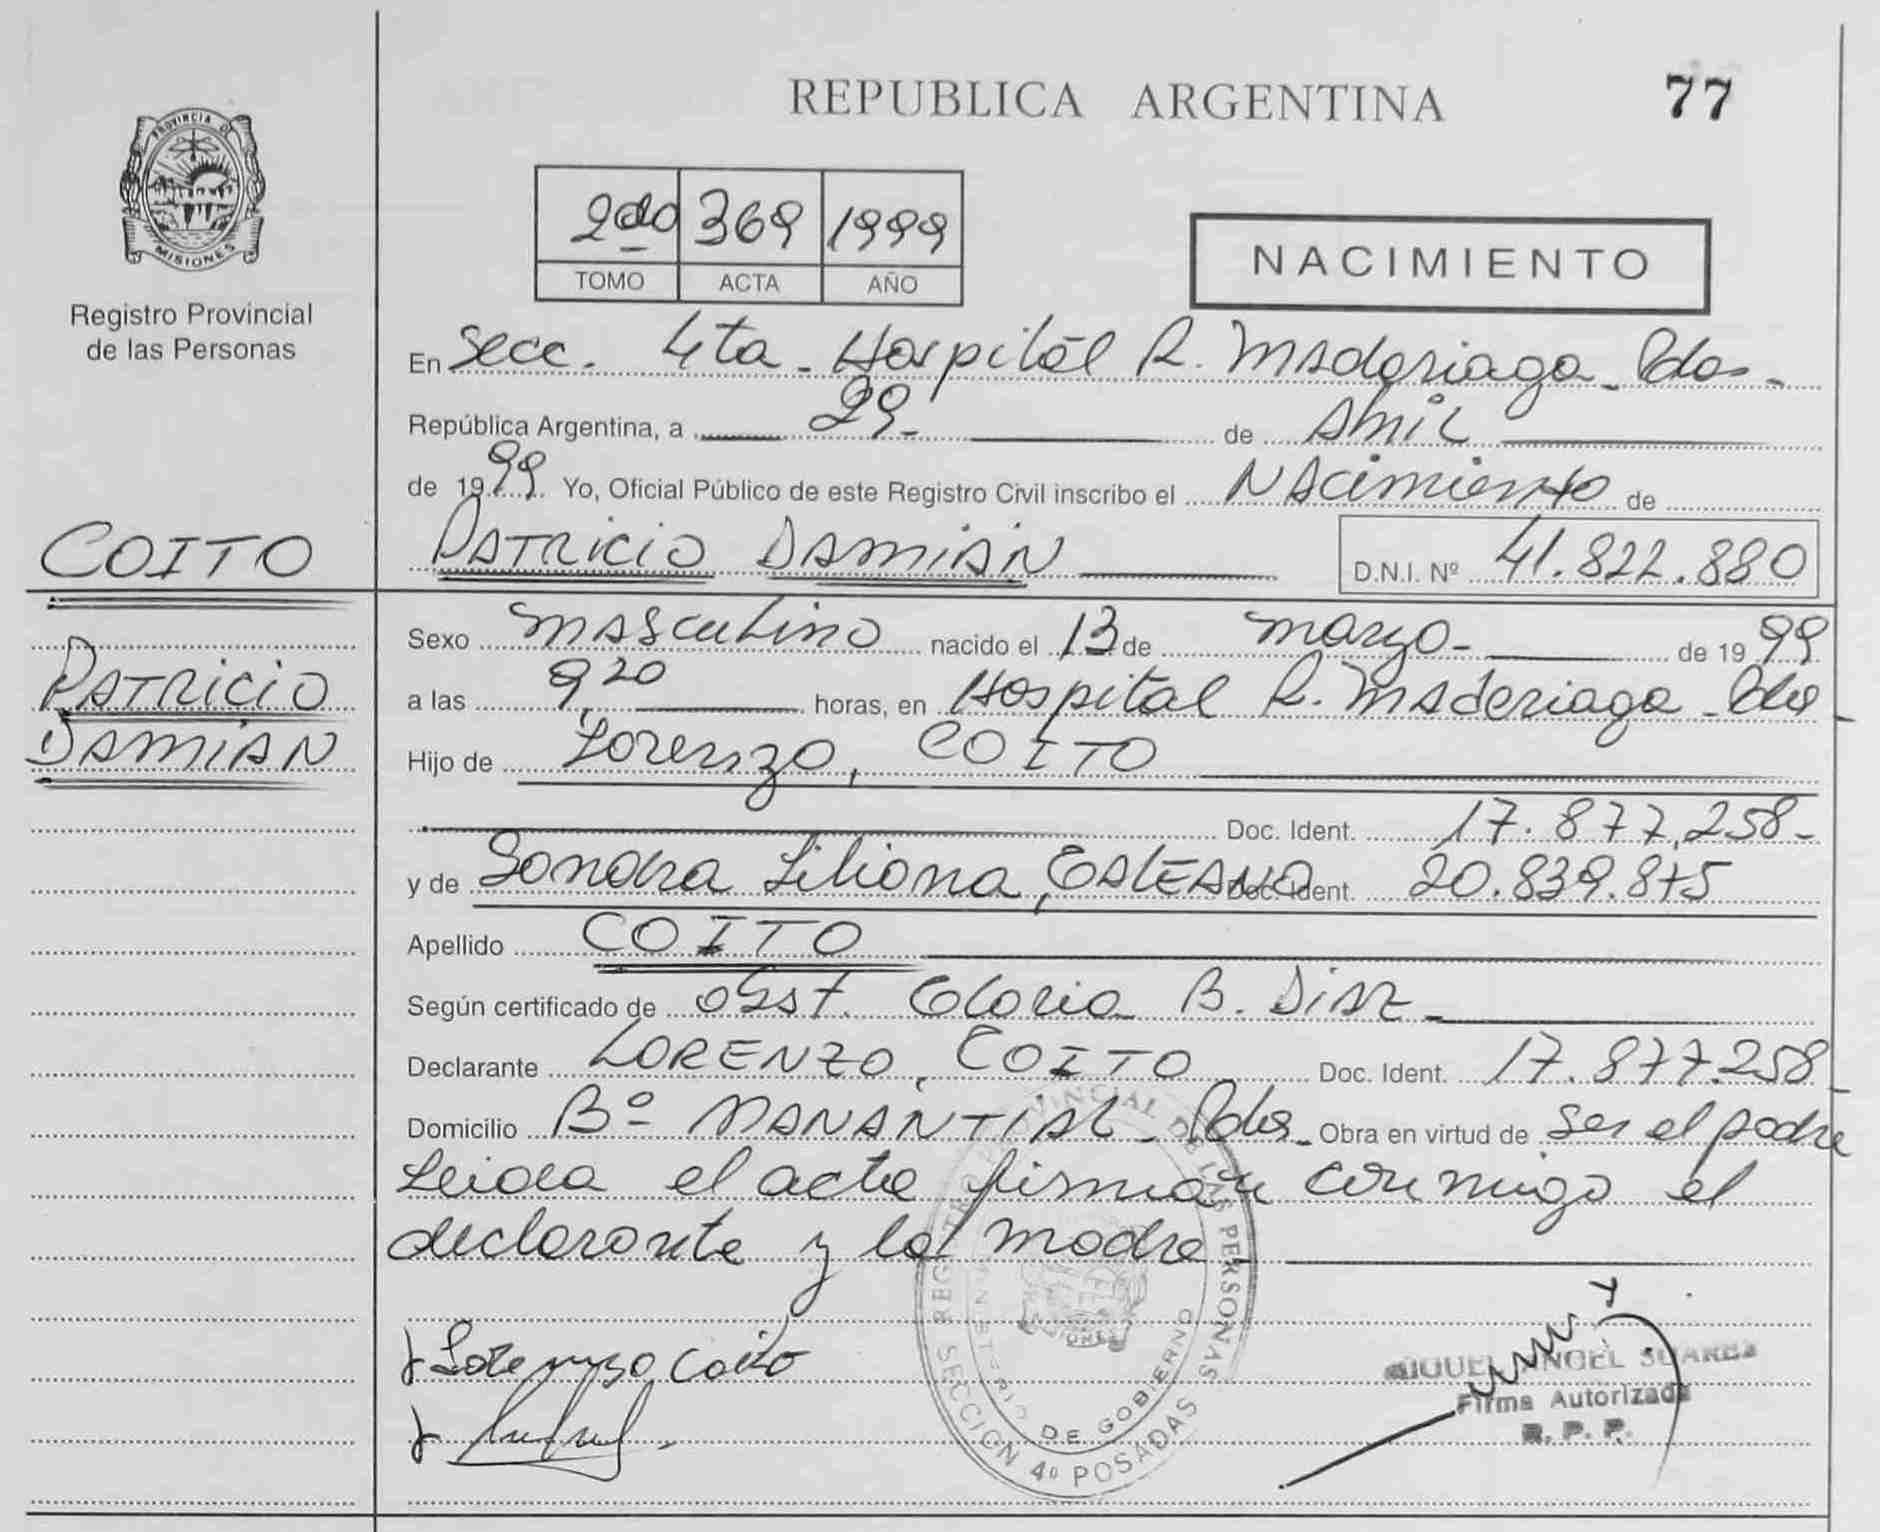 REPUBLICA ARGENTINA 77
PROVINCIA DE MISIONES
Registro Provincial
de las Personas
2do 369 1999
TOMO ACTA AÑO
NACIMIENTO
En Secc. 4ta - Hospital R. Madariaga - Pdas -
República Argentina, a 29 - de Abril
de 1999 Yo, Oficial Público de este Registro Civil inscribo el Nacimiento de
PATRICIO DAMIAN D.N.I. Nº 41.822.880
COITO
PATRICIO
DAMIAN
Sexo masculino nacido el 13 de marzo - de 1999
a las 9,20 horas, en Hospital R. Maderiaga - Pdas -
Hijo de Lorenzo, COITO
Doc. Ident. 17.877.258 -
y de Sandra Liliana, Doc. Ident. 20.839.875
Apellido COITO
Según certificado de obst. Gloria B. Diaz -
Declarante LORENZO, COITO Doc. Ident. 17.877.258 -
Domicilio Bº MANANTIAL - Pdas - Obra en virtud de ser el padre
Leida el acta firman conmigo el
declarante y la madre
Lorenzo Coito
REGISTRO PROVINCIAL DE LAS PERSONAS
MINISTERIO DE GOBIERNO
SECCION 4º POSADAS
MIGUEL ANGEL SUAREZ
Firma Autorizada
R. P. P.